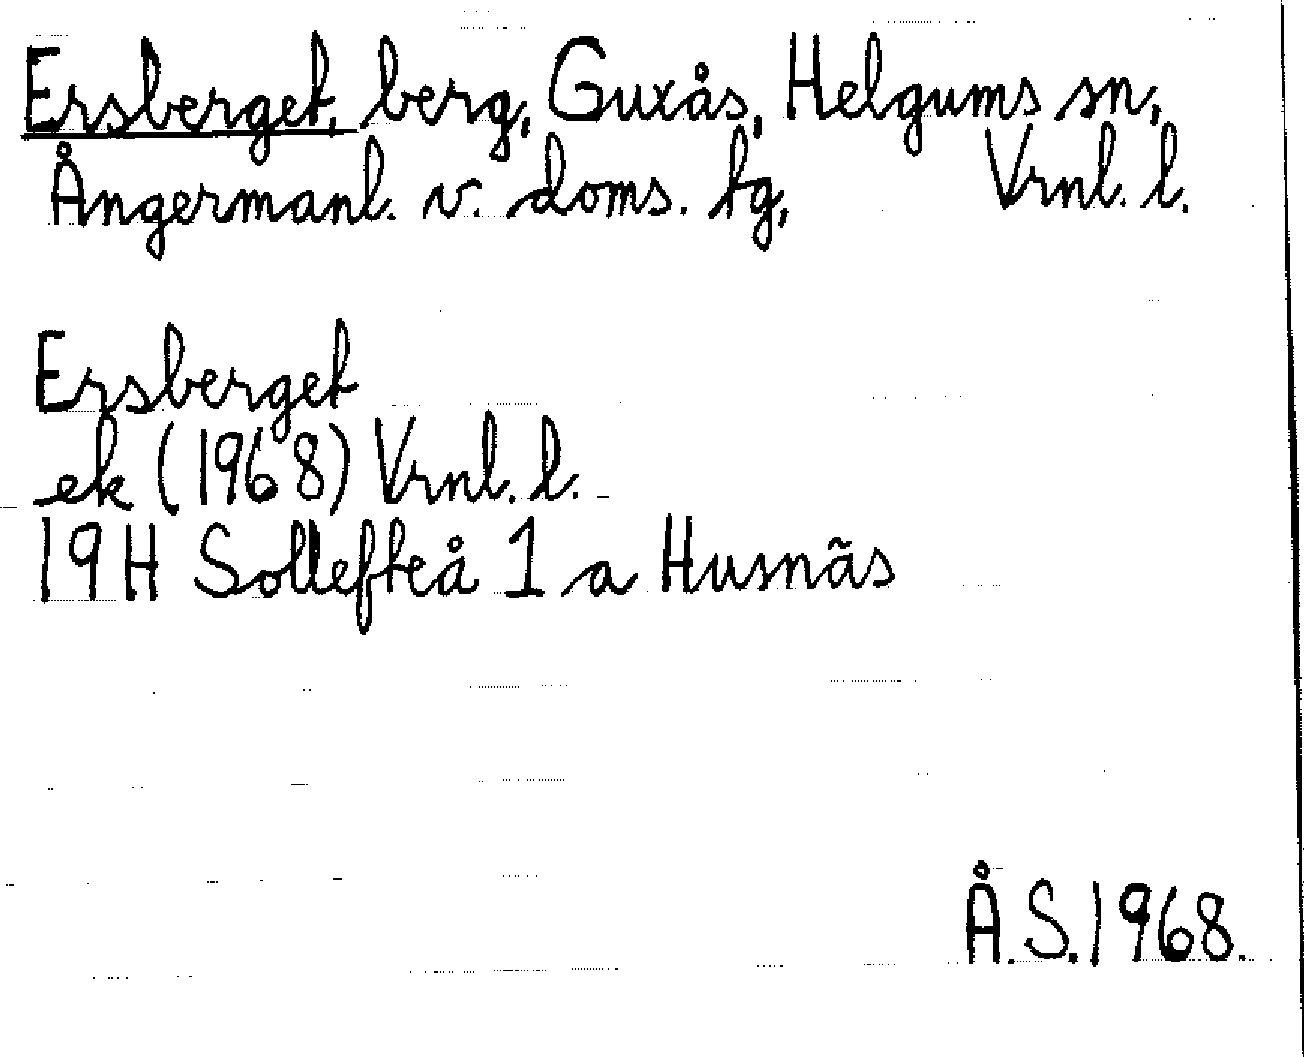 Ersberget, berg, Guxås, Helgums sn,
Ångermanl. v. doms. tg, Vrnl. l.
Ersberget
ek (1968) Vrnl. l.
19H Sollefteå 1 a Husnäs
Å.S.1968.